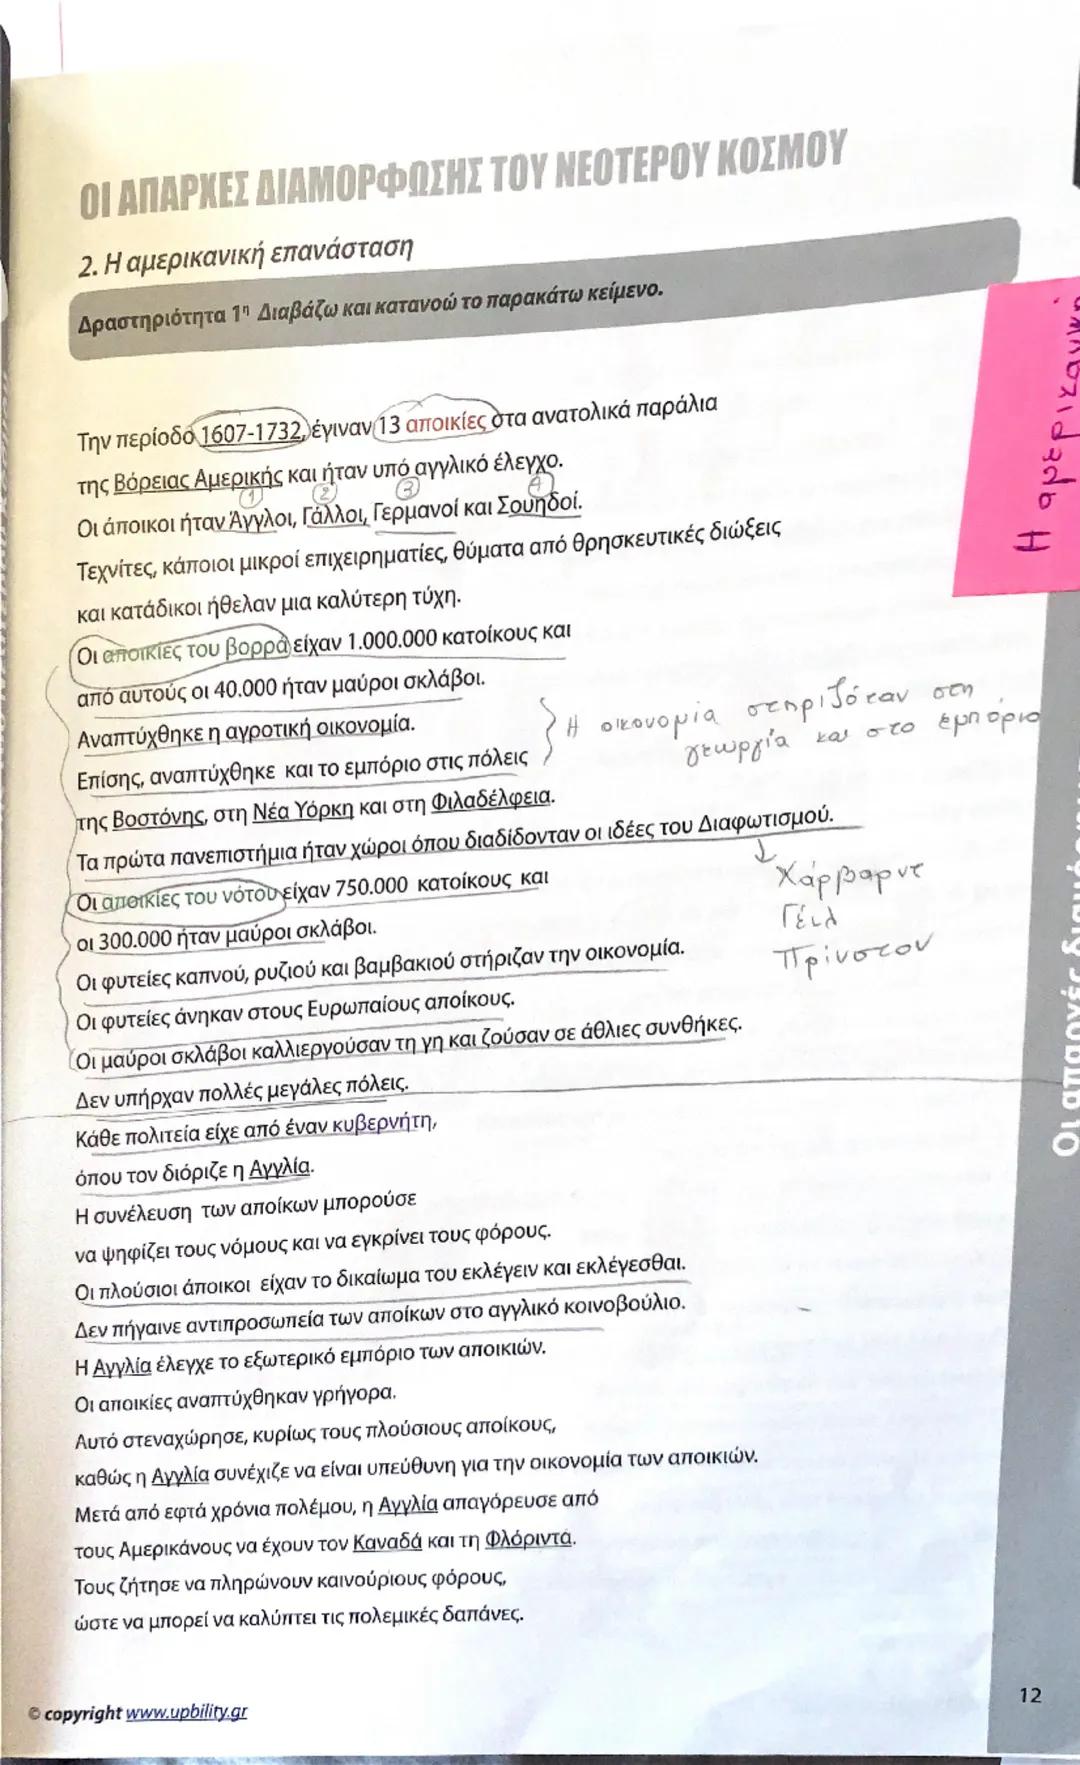 ΟΙ ΑΠΑΡΧΕΣ ΔΙΑΜΟΡΦΩΣΗΣ ΤΟΥ ΝΕΟΤΕΡΟΥ ΚΟΣΜΟΥ
2. Η αμερικανική επανάσταση
Δραστηριότητα 1η Διαβάζω και κατανοώ το παρακάτω κείμενο.
Η αμερικανική
Την περίοδο 1607-1732, έγιναν 13 αποικίες στα ανατολικά παράλια
της Βόρειας Αμερικής και ήταν υπό αγγλικό έλεγχο.
1 2 3 4
Οι άποικοι ήταν Άγγλοι, Γάλλοι, Γερμανοί και Σουηδοί.
Τεχνίτες, κάποιοι μικροί επιχειρηματίες, θύματα από θρησκευτικές διώξεις
και κατάδικοι ήθελαν μια καλύτερη τύχη.
Οι αποικίες του βορρά είχαν 1.000.000 κατοίκους και
από αυτούς οι 40.000 ήταν μαύροι σκλάβοι.
Αναπτύχθηκε η αγροτική οικονομία.
Η οικονομία στηριζόταν στη
γεωργία και στο εμπόριο
Επίσης, αναπτύχθηκε και το εμπόριο στις πόλεις
της Βοστόνης, στη Νέα Υόρκη και στη Φιλαδέλφεια.
Τα πρώτα πανεπιστήμια ήταν χώροι όπου διαδίδονταν οι ιδέες του Διαφωτισμού.
Χάρβαρντ
Γέιλ
Πρίνστον
Οι αποικίες του νότου είχαν 750.000 κατοίκους και
οι 300.000 ήταν μαύροι σκλάβοι.
Οι φυτείες καπνού, ρυζιού και βαμβακιού στήριζαν την οικονομία.
Οι φυτείες άνηκαν στους Ευρωπαίους αποίκους.
Οι μαύροι σκλάβοι καλλιεργούσαν τη γη και ζούσαν σε άθλιες συνθήκες.
Δεν υπήρχαν πολλές μεγάλες πόλεις.
Κάθε πολιτεία είχε από έναν κυβερνήτη,
όπου τον διόριζε η Αγγλία.
Η συνέλευση των αποίκων μπορούσε
να ψηφίζει τους νόμους και να εγκρίνει τους φόρους.
Οι πλούσιοι άποικοι είχαν το δικαίωμα του εκλέγειν και εκλέγεσθαι.
Δεν πήγαινε αντιπροσωπεία των αποίκων στο αγγλικό κοινοβούλιο.
Η Αγγλία έλεγχε το εξωτερικό εμπόριο των αποικιών.
Οι αποικίες αναπτύχθηκαν γρήγορα.
Αυτό στεναχώρησε, κυρίως τους πλούσιους αποίκους,
καθώς η Αγγλία συνέχιζε να είναι υπεύθυνη για την οικονομία των αποικιών.
Μετά από εφτά χρόνια πολέμου, η Αγγλία απαγόρευσε από
τους Αμερικάνους να έχουν τον Καναδά και τη Φλόριντα.
Τους ζήτησε να πληρώνουν καινούριους φόρους,
ώστε να μπορεί να καλύπτει τις πολεμικές δαπάνες.
Οι απαρχές
© copyright www.upbility.gr
12